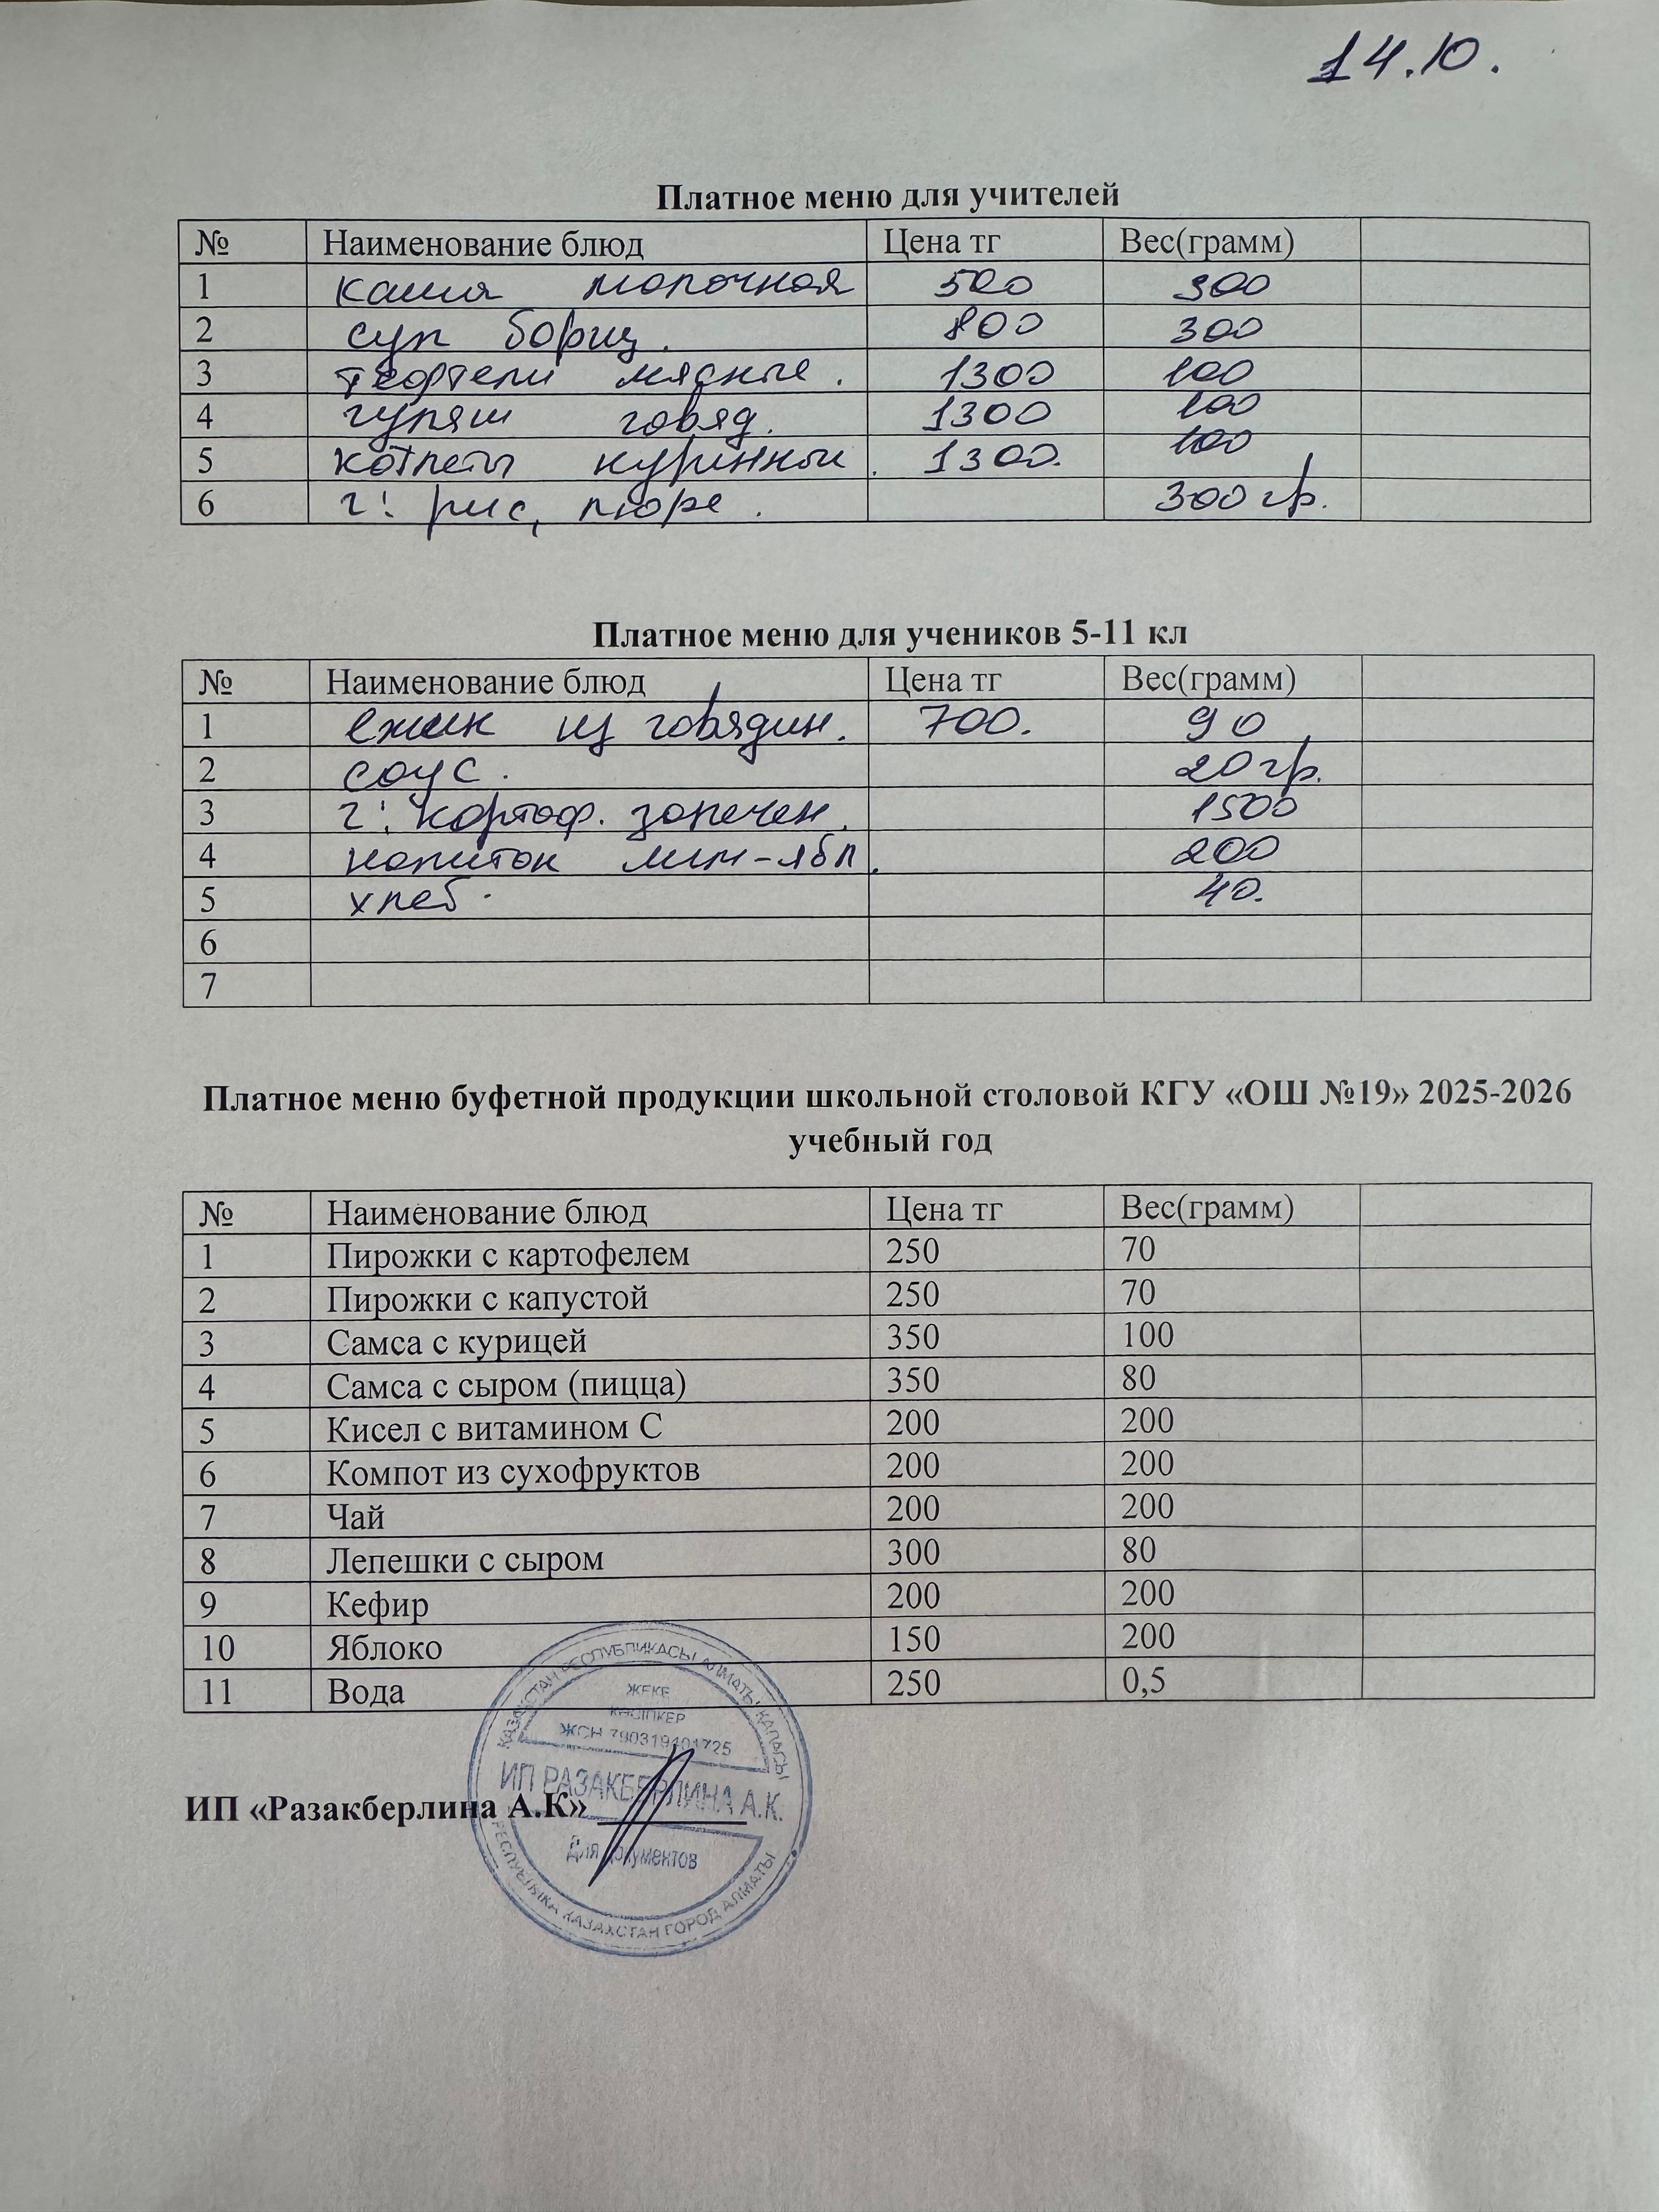 14.10.
Платное меню для учителей
№ Наименование блюд Цена тг Вес(грамм)
1 каша молочная 500 300
2 суп борщ. 800 300
3 тефтели мясные. 1300 100
4 гуляш говяд. 1300 100
5 котлеты куринные. 1300. 100
6 г: рис, пюре. 300 гр.
Платное меню для учеников 5-11 кл
№ Наименование блюд Цена тг Вес(грамм)
1 ежик из говядин. 700. 90
2 соус. 20 гр.
3 г: картоф. запечен. 1500
4 напиток лим-ябл. 200
5 хлеб. 40.
6
7
Платное меню буфетной продукции школьной столовой КГУ «ОШ №19» 2025-2026
учебный год
№ Наименование блюд Цена тг Вес(грамм)
1 Пирожки с картофелем 250 70
2 Пирожки с капустой 250 70
3 Самса с курицей 350 100
4 Самса с сыром (пицца) 350 80
5 Кисел с витамином С 200 200
6 Компот из сухофруктов 200 200
7 Чай 200 200
8 Лепешки с сыром 300 80
9 Кефир 200 200
10 Яблоко 150 200
11 Вода 250 0,5
ҚАЗАҚСТАН РЕСПУБЛИКАСЫ АЛМАТЫ ҚАЛАСЫ
ЖЕКЕ
КӘСІПКЕР
ЖСН 790319401725
ИП РАЗАКБЕРЛИНА А.К.
ИП «Разакберлина А.К»
Для документов
РЕСПУБЛИКА КАЗАХСТАН ГОРОД АЛМАТЫ